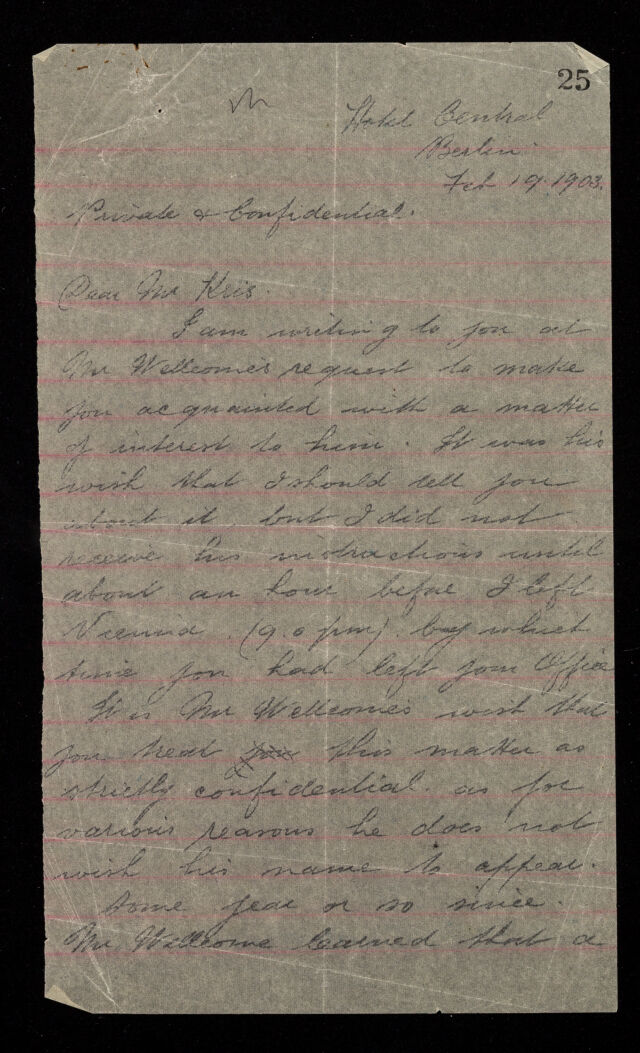 25
Hotel Central
Berlin.
Feb 19. 1903.
Private & Confidential.
Dear Mr Kris.
I am writing to you at
Mr Wellcome's request to make
you acquainted with a matter
of interest to him. It was his
wish that I should tell you
about it, but I did not
receive his instructions until
about an hour before I left
Vienna. (9.0 pm). by which
time you had left your Office
It is Mr Wellcome's wish that
you treat this matter as
strictly confidential. as for
various reasons he does not
wish his name to appear.
Some year or so since.
Mr Wellcome learned that a